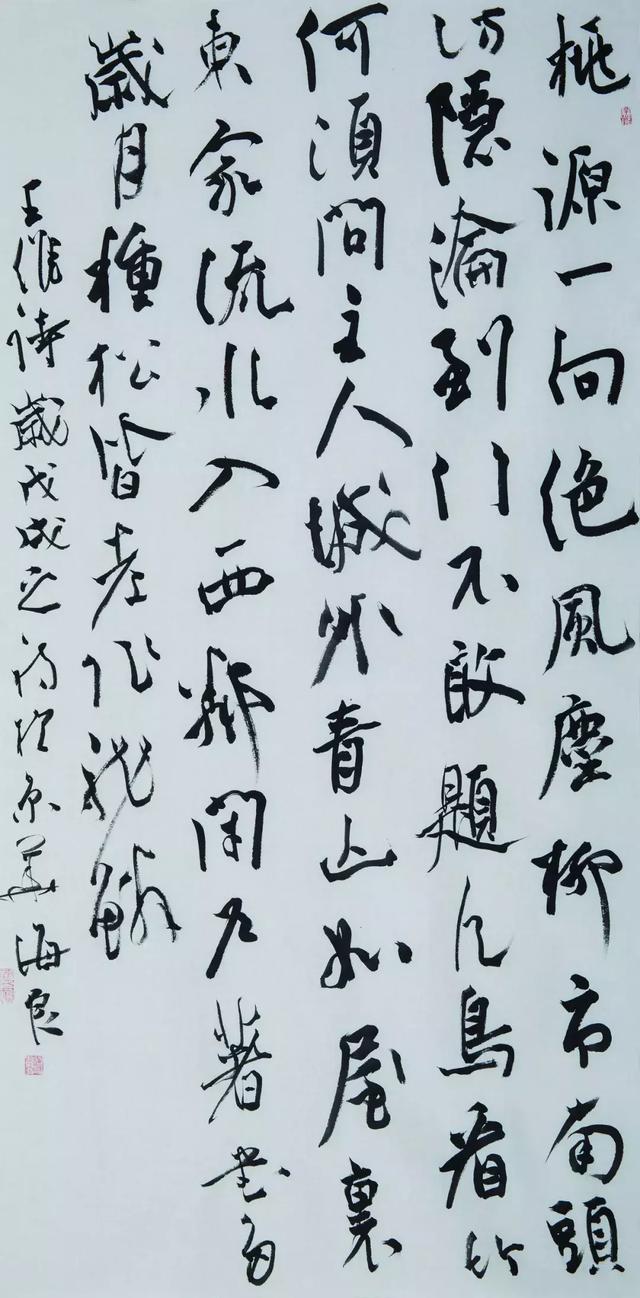 桃源一向絕風塵柳市南頭
訪隱淪到門不敢題凡鳥看竹
何須問主人城外青山如屋裏
東家流水入西鄰閉户著書多
歲月種松皆老作龍鱗
王維詩歲戊戌之於京華海良